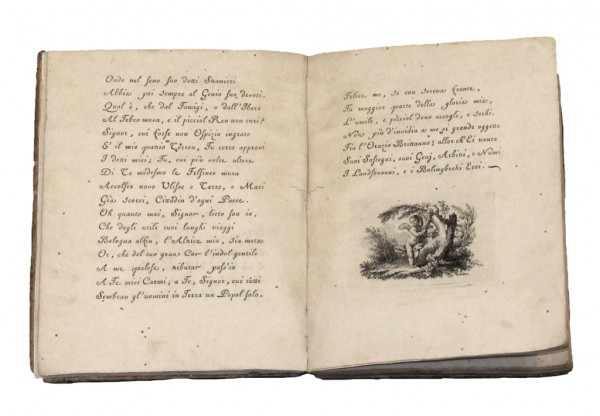 Onde nel seno suo dotti Stranieri
Abbia poi sempre al Genio suo devoti.
Qual'è, che dal Tamigi, o dall'Ibero
Al Tebro mova, e il picciol Ren non curi?
Signor, cui forse non Ospizio ingrato
È il mio grazio Terren, Tu certo approvi
I detti miei; Tu, cui più volte altero
Di Te medesmo le Felsinee mura
Accolser novo Ulisse e Terre, e Mari
Già scorsi, Cittadin d'ogni Paese.
Oh quanto mai, Signor, lieto son io,
Che degli utili tuoi lunghi viaggi
Bologna alfin, l'Altrice mia, sia meta.
Or, che del tuo gran Cor l'indol gentile
A me palese, tributar poss'io
A Te miei Carmi; a Te, Signor, cui tutti
Sembran gl'uomini in Terra un Popol solo.
Felice me, se con serena fronte,
Tu maggior parte della gloria mia,
L'umile, e picciol dono accogli, e serbi.
Non più d'invidia a me sì grande oggetto
Fia l'Orazio Britanno; allor ch'Ei vanta
Suoi Sostegni, suoi Genj, Arbitri, e Numi
I Landsorení, e i Bolingbroki Eroi.